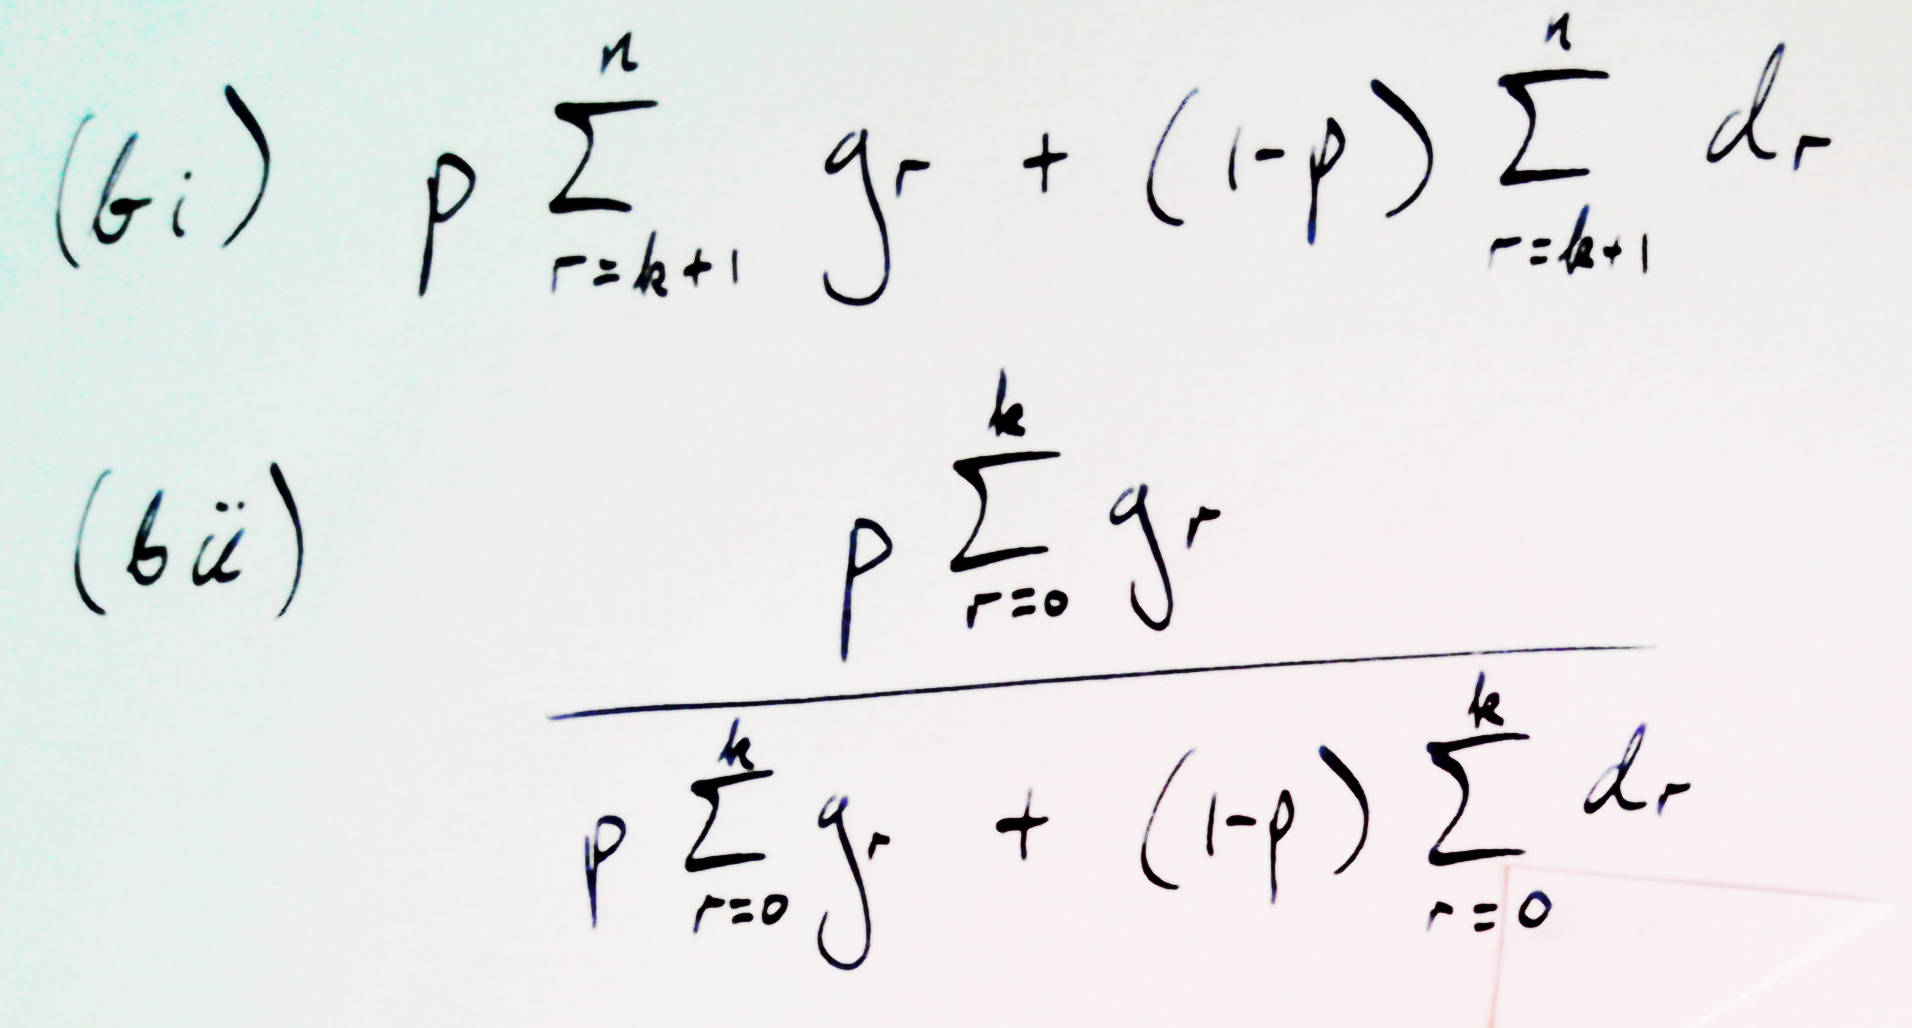 (bi) p \sum_{r=k+1}^{n} g_r + (1-p) \sum_{r=k+1}^{n} d_r
(bii) \frac{p \sum_{r=0}^{k} g_r}{p \sum_{r=0}^{k} g_r + (1-p) \sum_{r=0}^{k} d_r}